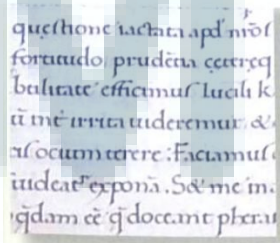 quęstione iactata apd' nros
fortitudo prudētia cęteręq
bilitate efficimus lucili k
ū inē irrita uideremur. &
as ocium terere. Faciamus
uideat exponā. S& me in
qdam cē q doceant phar